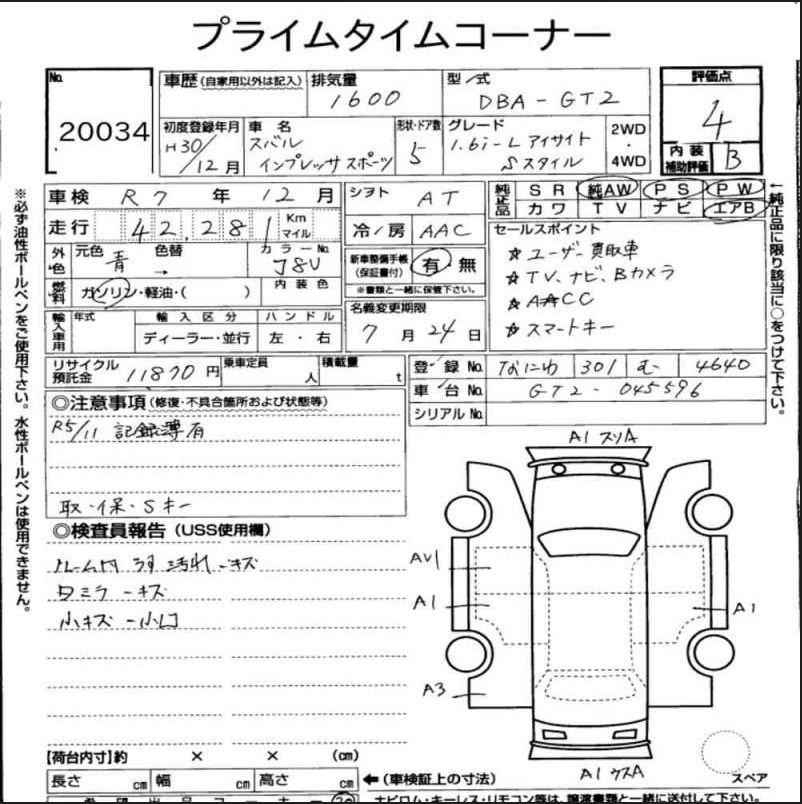 プライムタイムコーナー
No. 20034
車歴 (自家用以外は記入) 排気量 1600 型式 DBA-GT2
評価点 4
内装補助評価 B
初度登録年月 H30/12月 車名 スバル インプレッサスポーツ 形状・ドア数 5 グレード 1.6i-L アイサイト Sスタイル 2WD・4WD
車検 R7年12月 シフト AT
純正品 SR 純AW PS PW
カワ TV ナビ エアB
走行 42,281 Km マイル 冷/房 AAC
外色 元色 青 色替 → カラーNo. J8U 内装色
新車整備手帳(保証書付) 有・無
※書類と一緒に保管下さい。
燃料 ガソリン・軽油・( )
名義変更期限 7月24日
輸入車用 年式 輸入区分 ディーラー・並行 ハンドル 左・右
セールスポイント
☆ユーザー買取車
☆TV、ナビ、Bカメラ
☆AACC
☆スマートキー
リサイクル預託金 11870円 乗車定員 人 積載量 t
登録No. なにわ 301 む 4640
車台No. GT2-045596
シリアルNo.
◎注意事項(修復・不具合箇所および状態等)
R5/11 記録簿有
取・保・Sキー
◎検査員報告(USS使用欄)
ルーム内 汚れ キズ
ミラーキズ
小キズ 小凹
A1 スリA
AU1
A1
A1
A3
A1 ウスA
スペア
【荷台内寸】約 × × (cm)
長さ cm 幅 cm 高さ cm
←(車検証上の寸法)
ナビロム・キーレス・リモコン等は、譲渡書類と一緒に送付して下さい。
※必ず油性ボールペンをご使用下さい。水性ボールペンは使用できません。
←純正品に限り該当に○をつけて下さい。